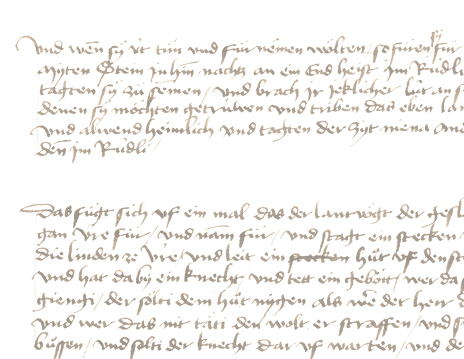 Vnd wen sÿ üt tůn vnd für nemen wölten, so fůren sÿ für
mÿten Stein jnhin nachtz an ein End heist jm Rüdli
tagten sÿ zů semen, vnd brach jr jeklicher lüt an s
denen sÿ möchten getrüwen vnd triben das eben lan
vnd alwend heimlich vnd tagten der zÿt niena
den jm Rüdli
Das fůgt sich vf ein mal das der lantvögt der gesl
gan vre für, vnd nam für, vnd stagt ein stecken
die linden ze vre, vnd leit ein stecken hůt vf den st
vnd hat da bÿ ein knecht vnd tett ein gebott, wer da
giengi, der sölti dem hůt nÿgen als we der herr
vnd wer das nit täti den wolt er straffen, vnd s
bůssen, vnd sölti der knecht dar vf warten, vnd de